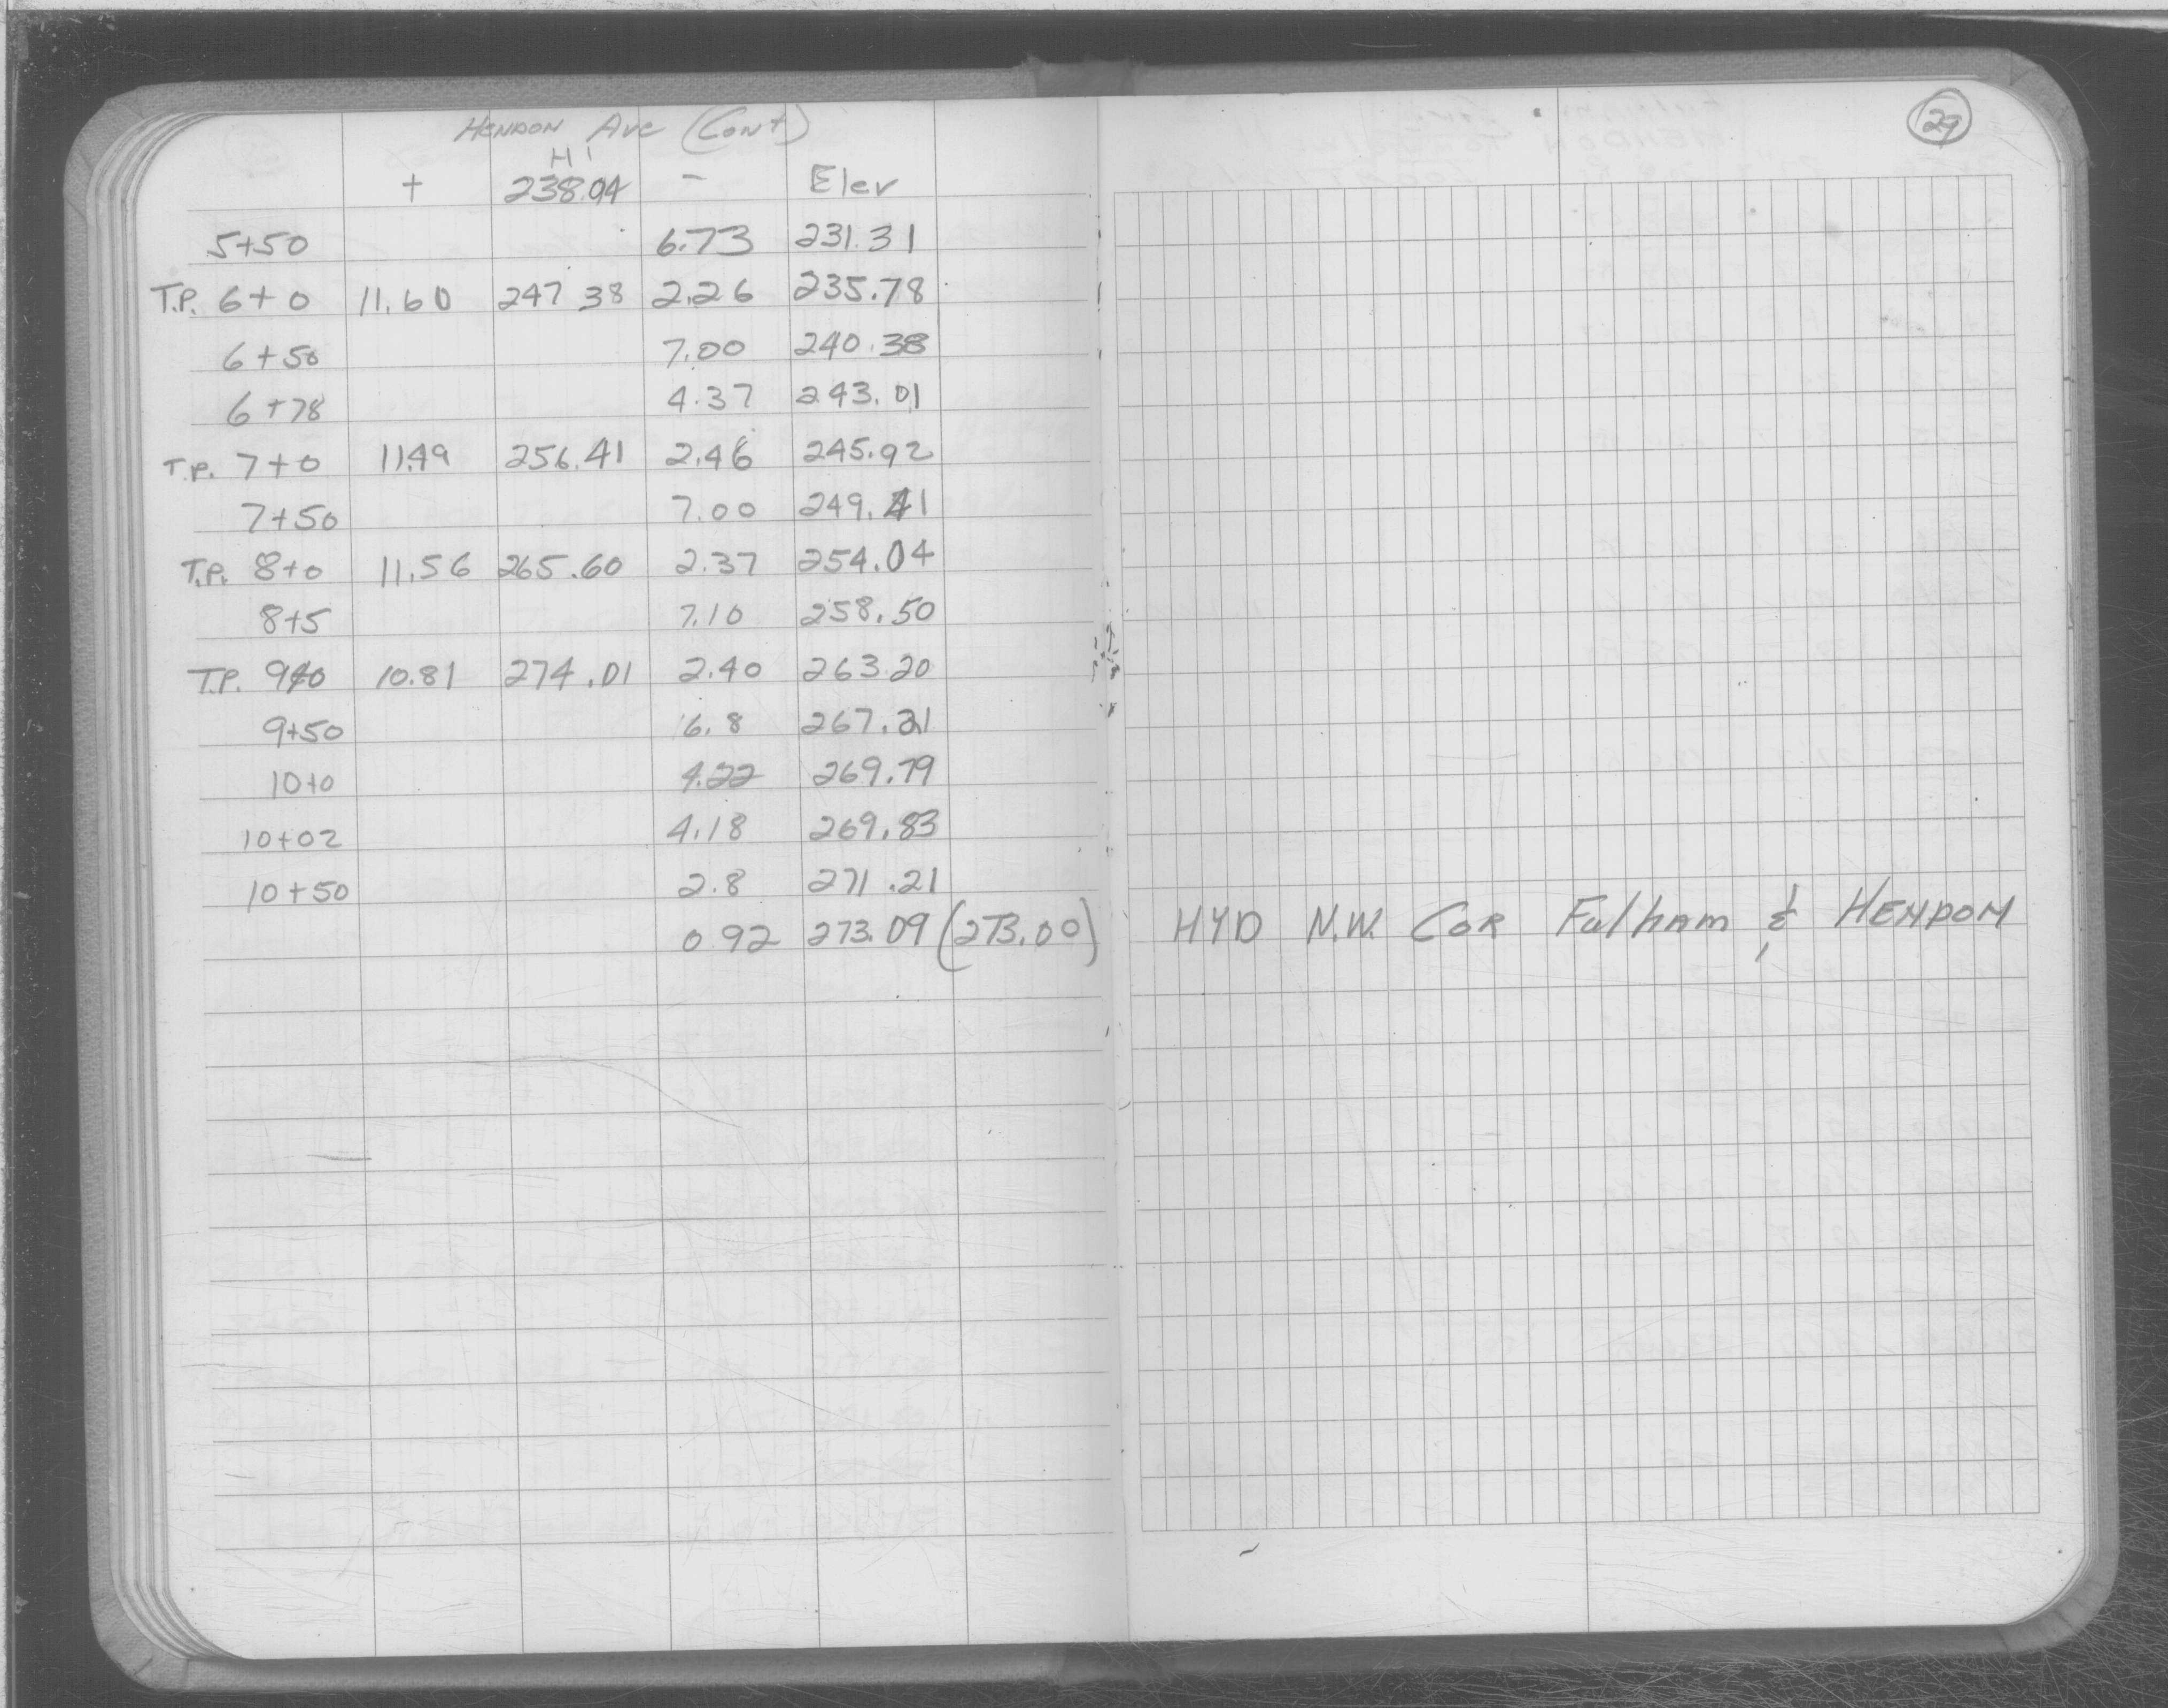 29
HENDON Ave (Cont)
HI
+ 238.04 - Elev
5+50 6.73 231.31
T.P. 6+0 11.60 247 38 2.26 235.78
6+50 7.00 240.38
6+78 4.37 243.01
T.P. 7+0 11.49 256.41 2.46 245.92
7+50 7.00 249.41
T.P. 8+0 11.56 265.60 2.37 254.04
8+5 7.10 258.50
T.P. 9+0 10.81 274.01 2.40 263.20
9+50 6.8 267.21
10+0 4.22 269.79
10+02 4.18 269.83
10+50 2.8 271.21
0 92 273.09 (273.00) HYD N.W. COR Fulham & HENDON